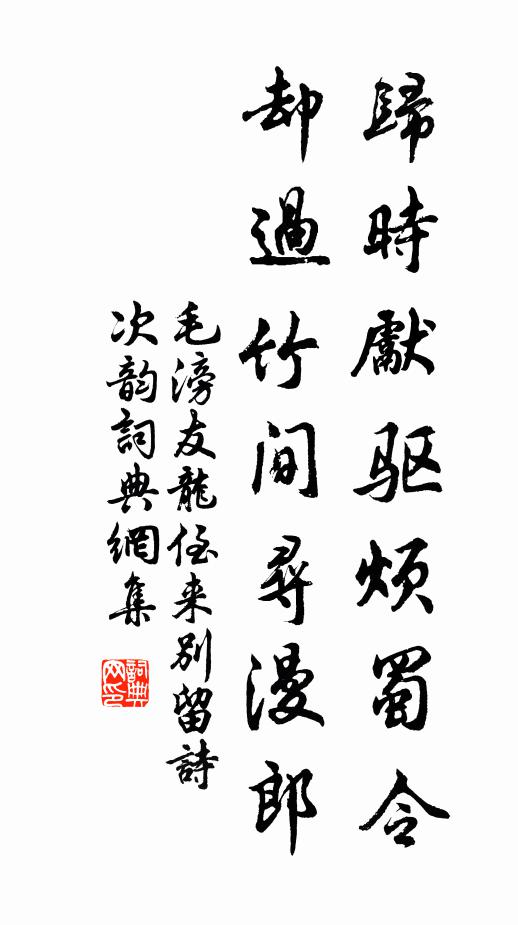 歸時獻驱煩蜀令
却過竹間尋漫郎
毛滂友龍侄来別留詩
次韵詞典網集
詞典网印